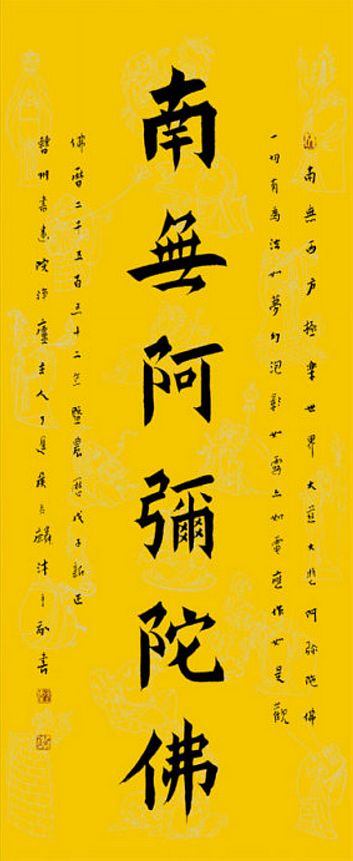 南無西方極樂世界大慈大悲阿弥陀佛
一切有為法如夢幻泡影如露亦如電應作如是觀
南無阿彌陀佛
佛曆二千五百五十二年暨農曆戊子新正
曹州書畫院淨廬主人麟沐手敬書